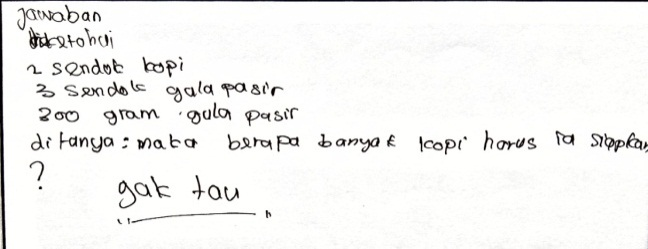 jawaban
diketahui
2 sendok kopi
3 sendok gula pasir
300 gram gula pasir
ditanya : maka berapa banyak kopi harus ia siapkan
?
gak tau